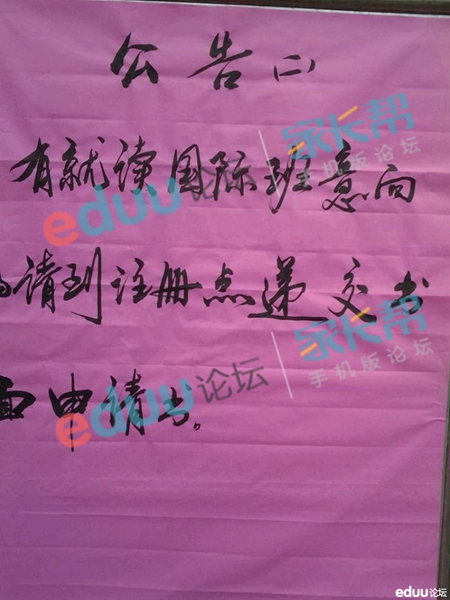 公告(二)
有就读国际班意向
的请到注册点递交书
面申请书。
eduu论坛 | 家长帮
手机版论坛
eduu论坛 | 家长帮
手机版论坛
eduu论坛